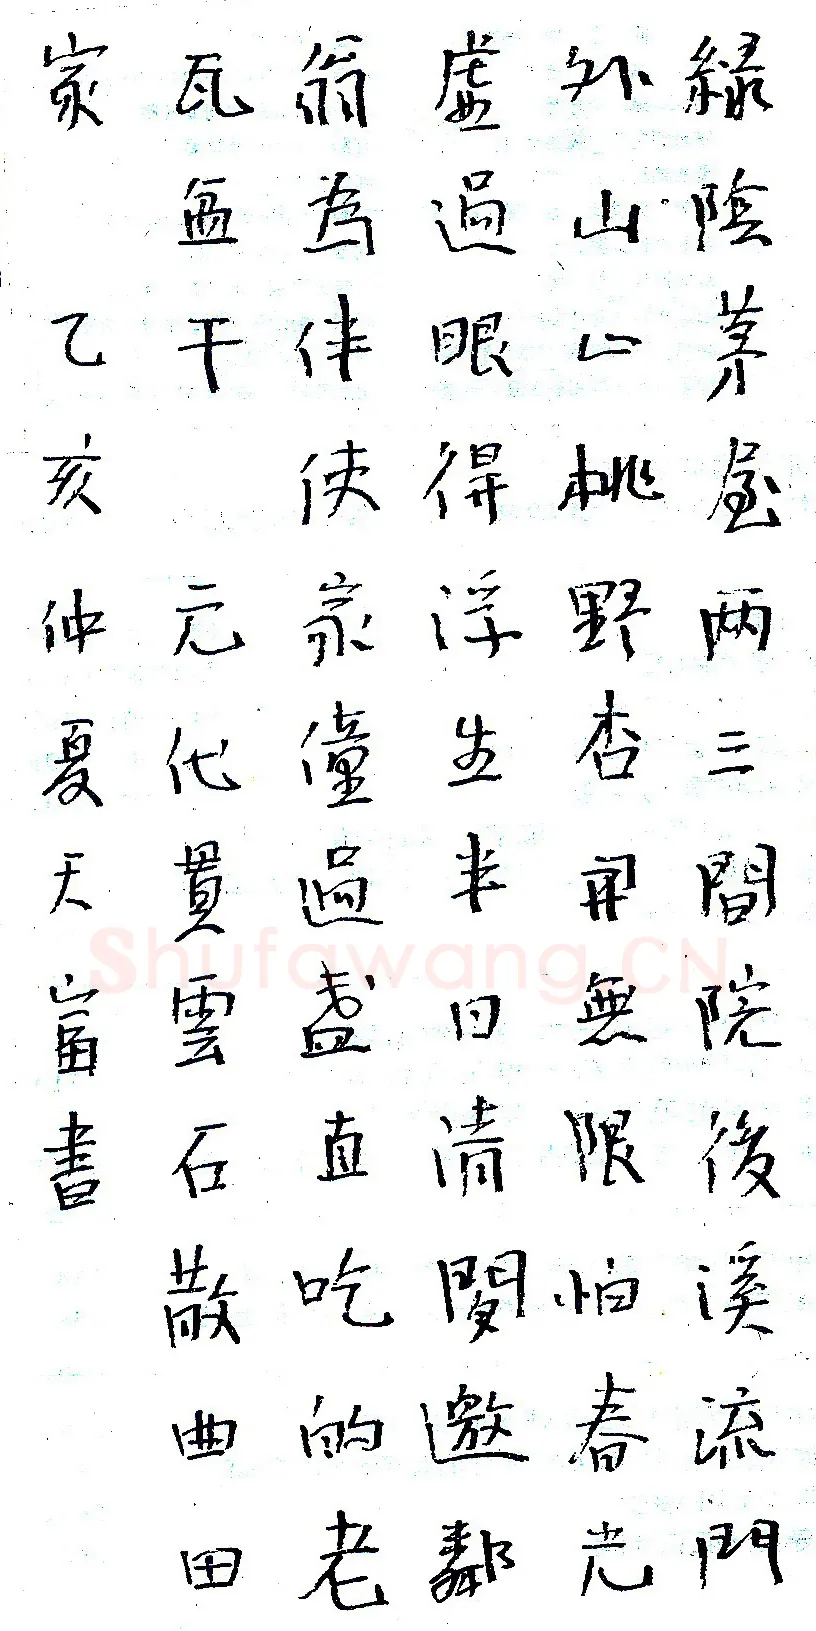 綠陰茅屋两三間院後溪流門
外山山桃野杏開無限怕春光
虛過眼得浮生半日清閒邀鄰
翁為伴使家僮過盞直吃的老
瓦盆干 元代貫雲石散曲田
家 乙亥仲夏天富書
Shufawang.CN